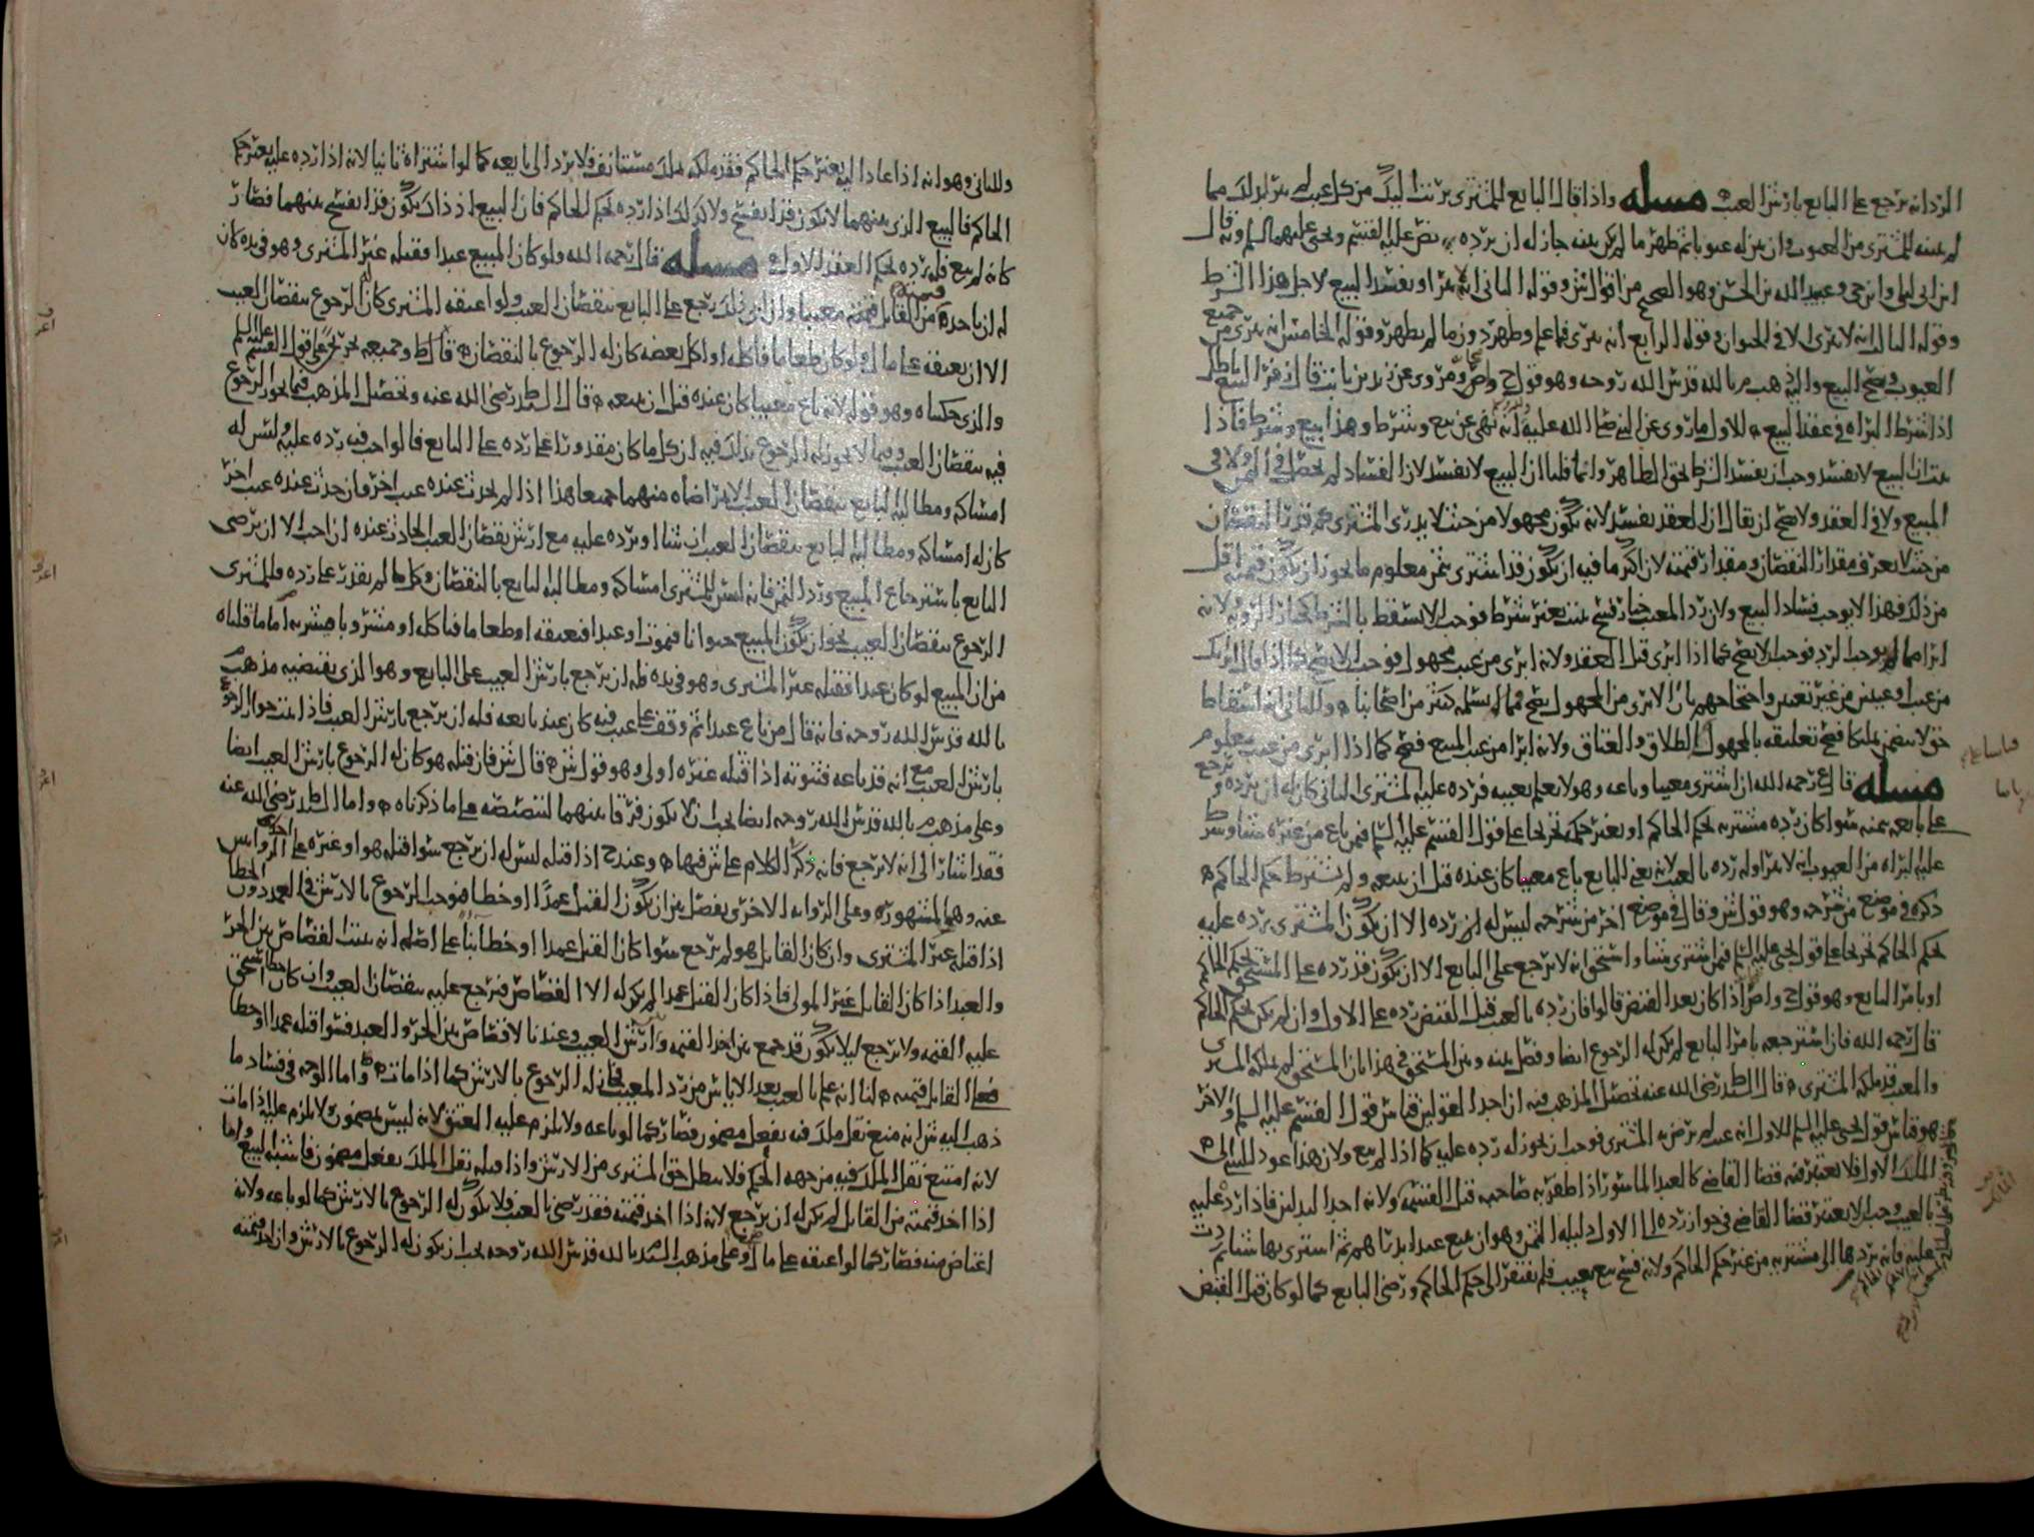 الرد انه يرجع على البايع بارش العيب مسله واذا قال البايع للمشتري بريت اليك من كل عيب لم يبر بذلك مما
لم يبينه للمشتري من العيوب وان بين له عيوبا ثم ظهر ما لم يكن بينه جاز له ان يرده به نص عليه القسم ويحيى عليهما السلم وبه قال
ابن ابي ليلى وابن حي وعبيد الله بن الحسن وهو الصحيح من اقوال ش وقوله الثاني انه يبرا ويفسد البيع لاجل هذا الشرط
وقوله الثالث انه لا يبرى الا في الحيوان وقوله الرابع انه يبرى فما علم وظهر دون ما لم يظهر وقوله الخامس انه يبرى من جميع
العيوب ويصح البيع والذي هب م بالله قدس الله روحه وهو قول ح وص ومروي عن زيد بن ثابت قال ن هذا البيع باطل
اذا شرط البراه في عقد البيع للاول ما روي عن النبي صلى الله عليه انه نهى عن بيع وشرط وهذا بيع وشرط فاذا
ثبت ان البيع لا يفسد وجب ان يفسد الشرط بحق الظاهر وانما قلنا ان البيع لا يفسد لان الفساد لم يحصل في الثمن ولا في
المبيع ولا في العقد ولا يصح ان يقال ان العقد يفسد لانه يكون مجهولا من حيث لا يدرى المشتري كم قدر النقصان
من حيث لا يعرف مقدار النقصان ومقدار قيمته لان اكثر ما فيه ان يكون قد اشترى بثمن معلوم ما يجوز ان يكون قيمته اقل
من ذلك فهذا لا يوجب فساد البيع ولان رد المعيب خيار فسخ يثبت بغير شرط فوجب الا يسقط بالشرط كخيار الرويه ولانه
ابرا مما لم يوجب الرد فوجب الا يصح كما اذا ابرى قبل العقد ولانه ابرى من عيب مجهول فوجب الا يصح كما اذا قال ابريك
من عيب او عيبين من غير تعيين واحتجاجهم بان الابرى من المجهول يصح فما لا يسلمه كثير من اصحابنا وللثاني انه اسقاط
حق لا يتضمن تمليكا فصح تعليقه بالمجهول كالطلاق والعتاق ولانه ابرا من عيب المبيع فصح كما اذا ابرى من عيب معلوم
مسله قال ع رحمه الله ان اشترى معيبا وباعه وهو لا يعلم بعيبه فرده عليه المشتري الثاني كان له ان يرده ويرجع
على بايعه بثمنه سوا كان رده مشتريه بحكم الحاكم او بغير حكمه تخريجا على قول القسم عليه السلم فيمن باع من غيره شيا وشرط
عليه البراه من العيوب انه لا يبرا وله رده بالعيب لانه يعني البايع باع معيبا كان عنده قبل ان يبيعه ولم يشترط حكم الحاكم
ذكره في موضع من شرحه وهو قول ش وقال في موضع اخر من شرحه ليس له ان يرده الا ان يكون المشتري يرده عليه
بحكم الحاكم تخريجا على قول يحيى عليه السلم فيمن اشترى شيا واستحق انه لا يرجع على البايع الا ان يكون قد رده على المستحق بحكم الحاكم
او بامر البايع وهو قول ح وص اذا كان بعد القبض قالوا فان رده بالعيب قبل القبض رده على الاول وان لم يكن بحكم الحاكم
قال رحمه الله فان استرجعه بامر البايع لم يكن له الرجوع ايضا وفصل بينه وبين المستحق في هذا بان المستحق لم يملكه المشتري
والمعيب قد ملكه المشتري قال السيد ط رضي الله عنه تحصيل المذهب فيه ان احد القولين قياس قول القسم عليه السلم والاخر
هو قياس قول يحيى عليه السلم للاول انه عيب لم يرض به المشتري فوجب ان يجوز له رده عليه كما اذا لم يبع ولان هذا عود للشي الى
الملك الاول فلا يعتبر فيه قضا القاضي كالعبد الماسور اذا ظفر به صاحبه قبل القسمه ولانه احد البدلين فاذا رد عليه
بالعيب وجب الا يعتبر قضا القاضي في جواز رده الى الاول دليله الثمن وهو ان يبيع عبدا بدراهم ثم اشترى بها شيا ثم ردت
عليه فانه يردها الى مشتريه من غير حكم الحاكم ولانه فسخ بيع بعيب فلم يفتقر الى حكم الحاكم ورضى البايع كما لو كان قبل القبض
وللثاني وهو انه اذا عاد اليه بغير حكم الحاكم فقد ملكه بملك مستانف فلا يرد الى بايعه كما لو اشتراه ثانيا لانه اذا رده عليه بغير حكم
الحاكم فالبيع الذي بينهما لا يكون قد انفسخ ولا كذلك اذا رده بحكم الحاكم فان البيع اذ ذاك يكون قد انفسخ بينهما فصار
كانه لم يبع فله رده بحكم العقد الاول مسله قال رحمه الله ولو كان المبيع عبدا فقتله غير المشتري وهو في يده كان
له ان ياخذه من القاتل قيمته معيبا وان ابى ذلك رجع على البايع بنقصان العيب ولو اعتقه المشتري كان له الرجوع بنقصان العيب
الا ان يعتقه على مال ولو كان طعاما فاكله او اكل بعضه كان له الرجوع بالنقصان قال ط وجميعه تخريج على قول القسم عليه السلم
والذي حكيناه وهو قوله لانه باع معيبا كان عنده قبل ان يبيعه قال السيد ط رضي الله عنه وتحصيل المذهب فيما يجوز الرجوع
فيه بنقصان العيب وفيما لا يجوز له الرجوع بذلك فيه ان كل ما كان مقدورا على رده على البايع فالواجب فيه رده عليه وليس له
امساكه ومطالبه البايع بنقصان العيب الا بتراضاه منهما جميعا هذا اذا لم يحدث عنده عيب اخر فان حدث عنده عيب اخر
كان له امساكه ومطالبه البايع بنقصان العيب ان شا او يرده عليه مع ارش نقصان العيب الحادث عنده ان احب الا ان يرضى
البايع باسترجاع المبيع ورد الثمن فانه ليس للمشتري امساكه ومطالبه البايع بالنقصان وكل ما لم يقدر على رده فللمشتري
الرجوع بنقصان العيب نحو ان يكون المبيع حيوانا فيموت او عبدا فيعتقه او طعاما فياكله او مشتر وباعه مشتريه اما ما قلناه
من ان المبيع لو كان عبدا فقتله غير المشتري وهو في يده فله ان يرجع بارش العيب على البايع وهو الذي يقتضيه مذهب م
بالله قدس الله روحه فانه قال من باع عبدا ثم وقف على عيب فيه كان عند بايعه فله ان يرجع بارش العيب فاذا ثبت جواز الرجوع
بارش العيب مع انه قد باعه فثبوته اذا قتله غيره اولى وهو قول ش قال ش فان قتله هو كان له الرجوع بارش العيب ايضا
وعلى مذهب م بالله قدس الله روحه ايضا يجب ان لا يكون فرقا بينهما لتنصيصه على ما ذكرناه واما السيد ط رضي الله عنه
فقد اشار الى انه لا يرجع فانه ذكر الكلام على ش فيها وعند ح اذا قتله ليس له ان يرجع سوا قتله هو او غيره على احدى الروايتين
عنه وهي المشهوره وعلى الروايه الاخرى يفصل بين ان يكون القتل عمدا او خطا فيوجب الرجوع بالارش في العمد دون الخطا
اذا قتله غير المشتري وان كان القاتل هو لم يرجع سوا كان القتل عمدا او خطا بنا على اصله انه يثبت القصاص بين الحر
والعبد اذا كان القاتل غير المولى فاذا كان القتل عمدا لم يكن له الا القصاص فيرجع عليه بنقصان العيب وان كان خطا استحق
عليه القيمه ولا يرجع ليلا يكون قد جمع بين اخذ القيمه وارش العيب وعندنا لا قصاص بين الحر والعبد فسوا قتله عمدا او خطا
فعلى القاتل قيمته لنا انه علم بالعيب بعد الاياس من رد المعيب فجاز له الرجوع بالارش كما اذا مات واما الوجه في فساد ما
ذهب اليه ش انه منع نقل ملك فيه بفعل مضمون فصار كما لو باعه ولا يلزم عليه العتق لانه ليس بمضمون ولا يلزم عليه اذا مات
لانه امتنع نقل الملك فيه من جهه الحكم فلا يبطل حق المشتري من الارش واذا قتله نقل الملك بفعل مضمون فاشبه البيع واما
اذا اخذ قيمته من القاتل لم يكن له ان يرجع لانه اذا اخذ قيمته فقد رضي بالعيب فلا يكون له الرجوع بالارش كما لو باعه ولانه
اعتاض منه فصار كما لو اعتقه على مال وعلى مذهب السيد م بالله قدس الله روحه يجب ان يكون له الرجوع بالارش وان اخذ قيمته